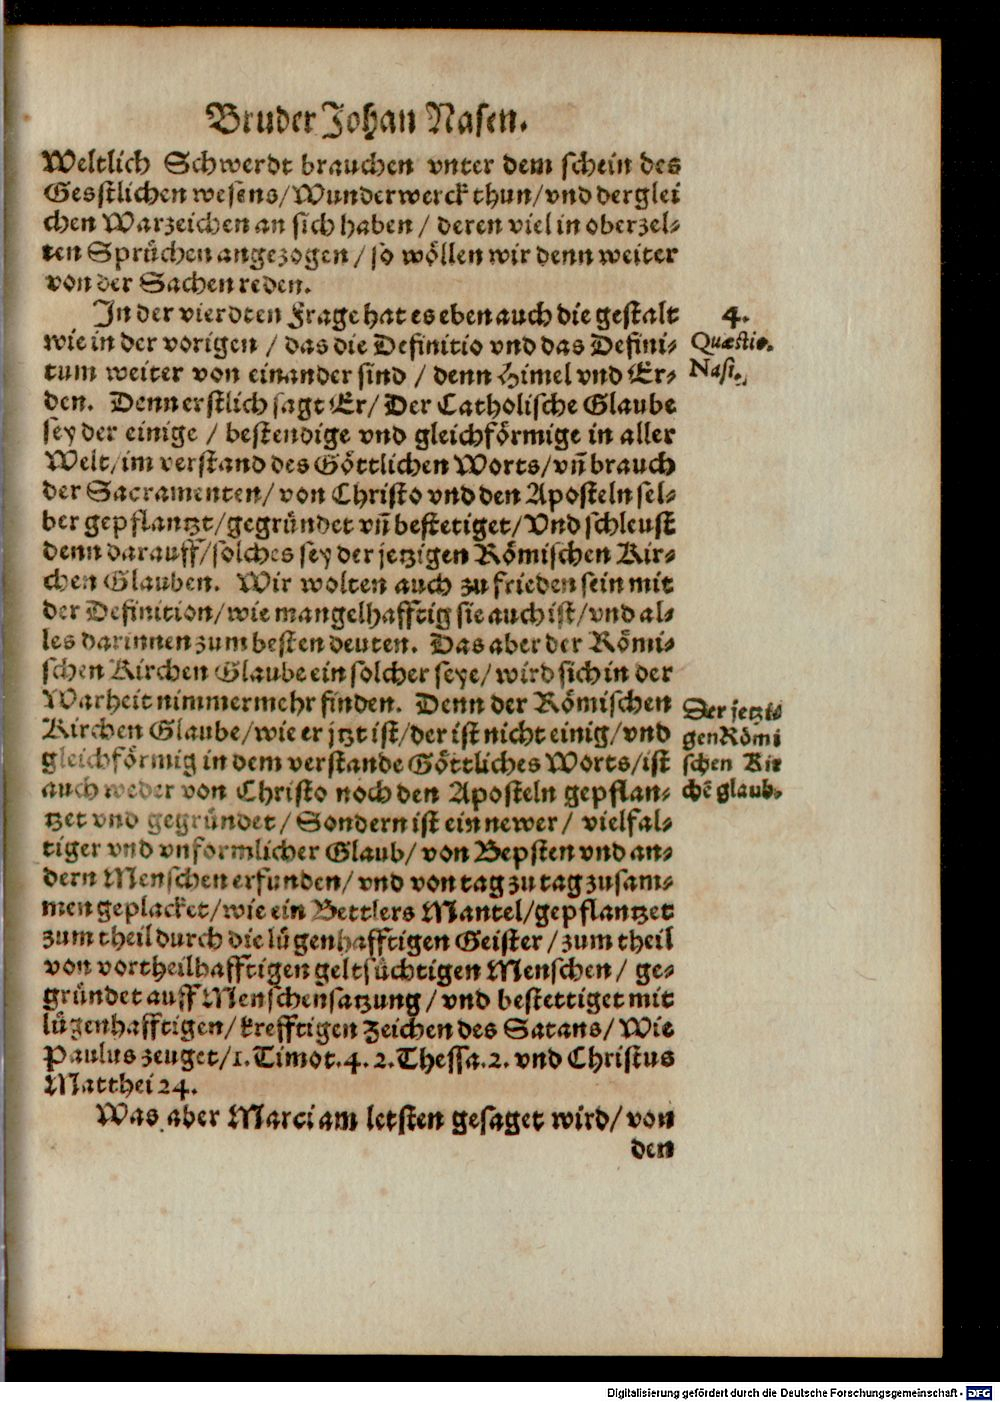 Bruder Johan Nasen.
Weltlich Schwerdt brauchen vnter dem schein des
Gesstlichen wesens/Wunderwerck thun/vnd derglei
chen Warzeichen an sich haben / deren viel in oberzel-
ten Sprüchen angezogen / so wöllen wir denn weiter
von der Sachen reden.
In der vierdten Frage hat es eben auch die gestalt
wie in der vorigen / das die Definitio vnd das Defini-
tum weiter von einander sind / denn Himel vnd Er-
den. Denn erstlich sagt Er/ Der Catholische Glaube
sey der einige / bestendige vnd gleichförmige in aller
Welt/im verstand des Göttlichen Worts/vñ brauch
der Sacramenten/ von Christo vnd den Aposteln sel-
ber gepflantzt/gegründet vñ bestetiget/Vnd schleust
denn darauff/solches sey der jetzigen Römischen Kir-
chen Glauben. Wir wolten auch zu frieden sein mit
der Definition/wie mangelhafftig sie auch ist/vnd al-
les darinnen zum besten deuten. Das aber der Römi-
schen Kirchen Glaube ein solcher seye/ wird sich in der
Warheit nimmermehr finden. Denn der Römischen
Kirchen Glaube/wie er jtzt ist/der ist nicht einig/vnd
gleichförmig in dem verstande Göttliches Worts/ist
auch weder von Christo noch den Aposteln gepflan-
tzet vnd gegründet/ Sondern ist ein newer / vielfal-
tiger vnd vnformlicher Glaub/ von Bepsten vnd an-
dern Menschen erfunden/ vnd von tag zu tag zusam-
men geplacket/wie ein Bettlers Mantel/gepflantzet
zum theil durch die lügenhafftigen Geister / zum theil
von vortheilhafftigen geltsüchtigen Menschen / ge-
gründet auff Menschensatzung / vnd bestettiget mit
lügenhafftigen/ krefftigen Zeichen des Satans/ Wie
Paulus zeuget/1. Timot.4. 2.Thessa.2. vnd Christus
Matthei 24.
Was aber Marci am letsten gesaget wird/ von
den
4.
Quæstio.
Nasi.
Der jetzi-
gen Römi
schen Kir
chē glaub.
Digitalisierung gefördert durch die Deutsche Forschungsgemeinschaft - DFG